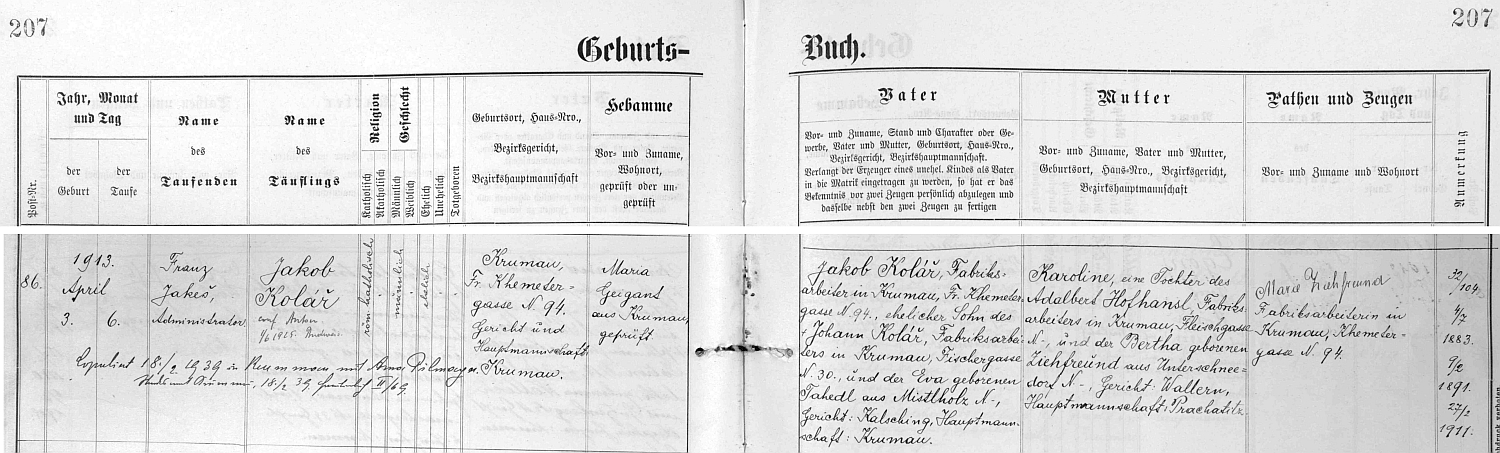 207
207
Geburts-
Buch.
Post-Nr.
Jahr, Monat
und Tag
der
Geburt
der
Taufe
Name
des
Taufenden
Name
des
Täuflings
Religion
Katholisch
Akatholisch
Geschlecht
Männlich
Weiblich
Ehelich
Unehelich
Totgeboren
Geburtsort, Haus-Nro.,
Bezirksgericht,
Bezirkshauptmannschaft
Hebamme
Vor- und Zuname,
Wohnort,
geprüft oder un-
geprüft
Vater
Vor- und Zuname, Stand und Charakter oder Ge-
werbe, Vater und Mutter, Geburtsort, Haus-Nro.,
Bezirksgericht, Bezirkshauptmannschaft.
Verlangt der Erzeuger eines unehel. Kindes als Vater
in die Matrik eingetragen zu werden, so hat er das
Bekenntnis vor zwei Zeugen persönlich abzulegen und
dasselbe nebst den zwei Zeugen zu fertigen
Mutter
Vor- und Zuname, Vater und Mutter,
Geburtsort, Haus-Nro., Bezirksgericht,
Bezirkshauptmannschaft
Pathen und Zeugen
Vor- und Zuname und Wohnort
Anmerkung
86.
1913.
April
3. 6.
Franz
Jakeš,
Administrator
Jakob
Kolář
conf. Anton
römisch katholisch
männlich
ehelich
Krumau,
Fr. Khemeter-
gasse N. 94.
Gericht und
Hauptmannschaft:
Krumau.
Maria
Geigant
aus Krumau,
geprüft
Copuliert 18./2. 1939 in Krummau mit Anna
18./2. 39
Jakob Kolář, Fabriks-
arbeiter in Krumau, Fr. Khemeter-
gasse N. 94., ehelicher Sohn des
† Johann Kolář, Fabriksarbei-
ters in Krumau, Fischergasse
N. 30., und der Eva geborenen
Tahedl aus Mistlholz N-,
Gericht: Kalsching, Hauptmann-
schaft: Krumau.
Karoline, eine Tochter des
Adalbert Hofhansl Fabriks-
arbeiters in Krumau, Fleischgasse
N-, und der Bertha geborenen
Ziehfreund aus Unterschnee-
dorf N-, Gericht: Wallern,
Hauptmannschaft: Prachatitz.
Marie Ziehfreund
Fabriksarbeiterin in
Krumau, Khemeter-
gasse N. 94.
32/104
4/7
1883.
9/2
1891.
27/2
1911.